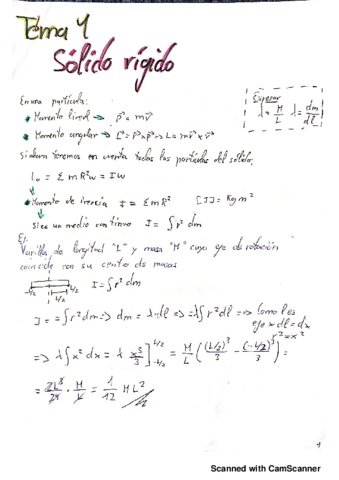 Tema 4
Sólido rígido
En una partícula:
Momento lineal → p⃗ = m v⃗
Momento angular → L⃗ =
λ = M/L   λ = dm/dl
Si ahora tenemos en cuenta todas las partículas del sólido:
L₀ = Σ m R² ω = I ω
Momento de inercia I = Σ m R²   [I] = Kg m²
Si es un medio continuo I = ∫ r² dm
Ej.
Varilla de longitud "L" y masa "M" cuyo eje de rotación
coincide con su centro de masas
L/2   L/2   I = ∫ r² dm
I = ∫ r² dm => dm = λ dl => = λ ∫ r² dl => Como l es
eje x dl = dx
r² = x²
=> λ ∫ x² dx = λ x³/3 ]_{-L/2}^{L/2} = M/L ( (L/2)³/3 − (−L/2)³/3 ) =
= 2L³/24 · M/L = 1/12 M L²
1
Scanned with CamScanner